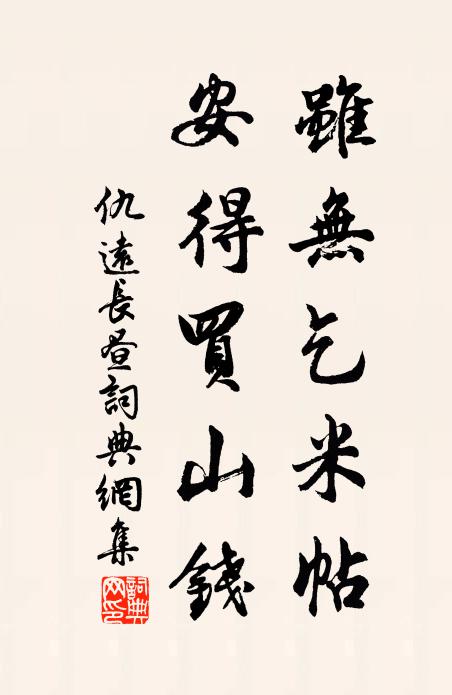 雖無乞米帖
安得買山錢
仇遠長昼詞典網集
詞典网印